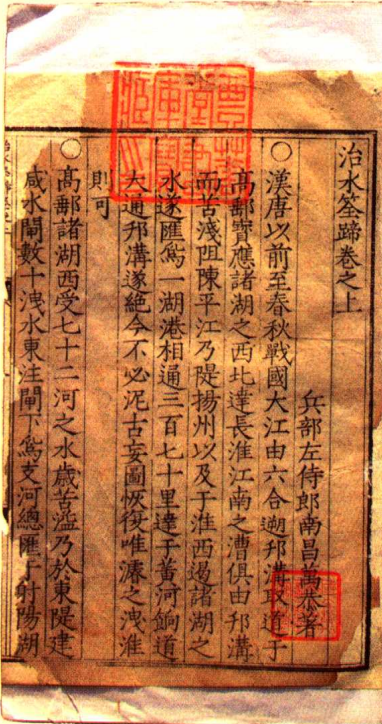 治水筌蹄卷之上
兵部左侍郎南昌萬恭著
〇漢唐以前至春秋戰國大江由六合遡邗溝取道于
高郵寶應諸湖之西北達長淮江南之漕俱由邗溝
而苦淺阻陳平江乃隄揚州以及于淮西遏諸湖之
水遂匯爲一湖港相通三百七十里達于黃河餉道
大通邗溝遂絕今不必泥古妄圖恢復唯濬之洩淮
則可
〇高郵諸湖西受七十二河之水歲苦溢乃於東隄建
減水閘數十洩水東注閘下爲支河總匯于射陽湖